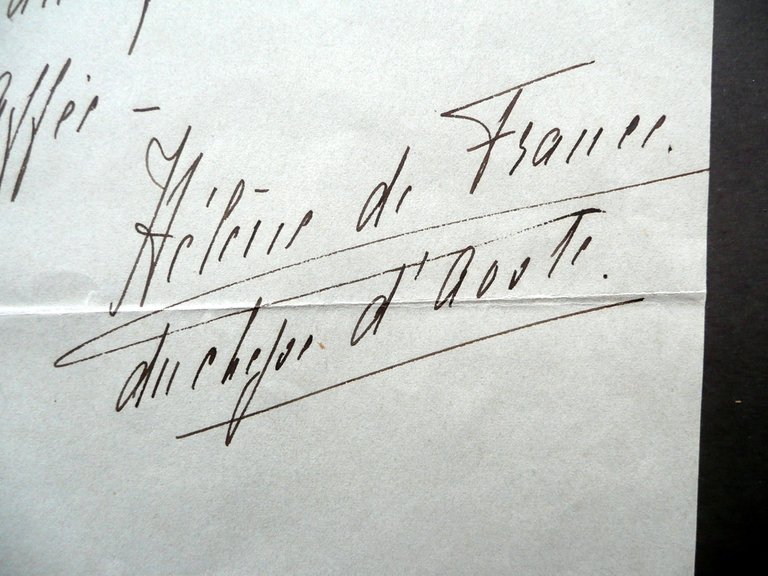 Hélène de France.
duchesse d'Aoste.